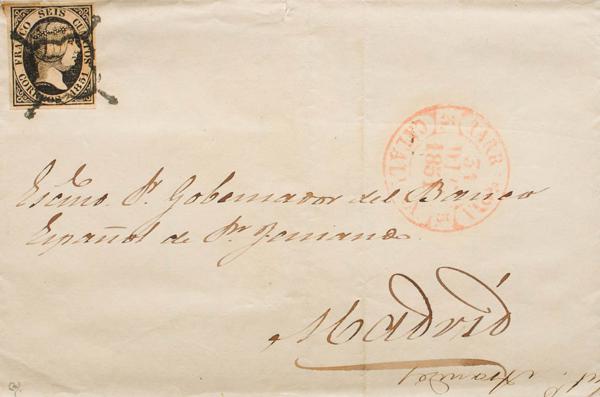 FRANCO SEIS CUARTOS
CORREOS 1851
CATALUÑA
31
DIC
185
Escmo Sr. Gobernador del Banco
Español de Sn. Fernando
Madrid